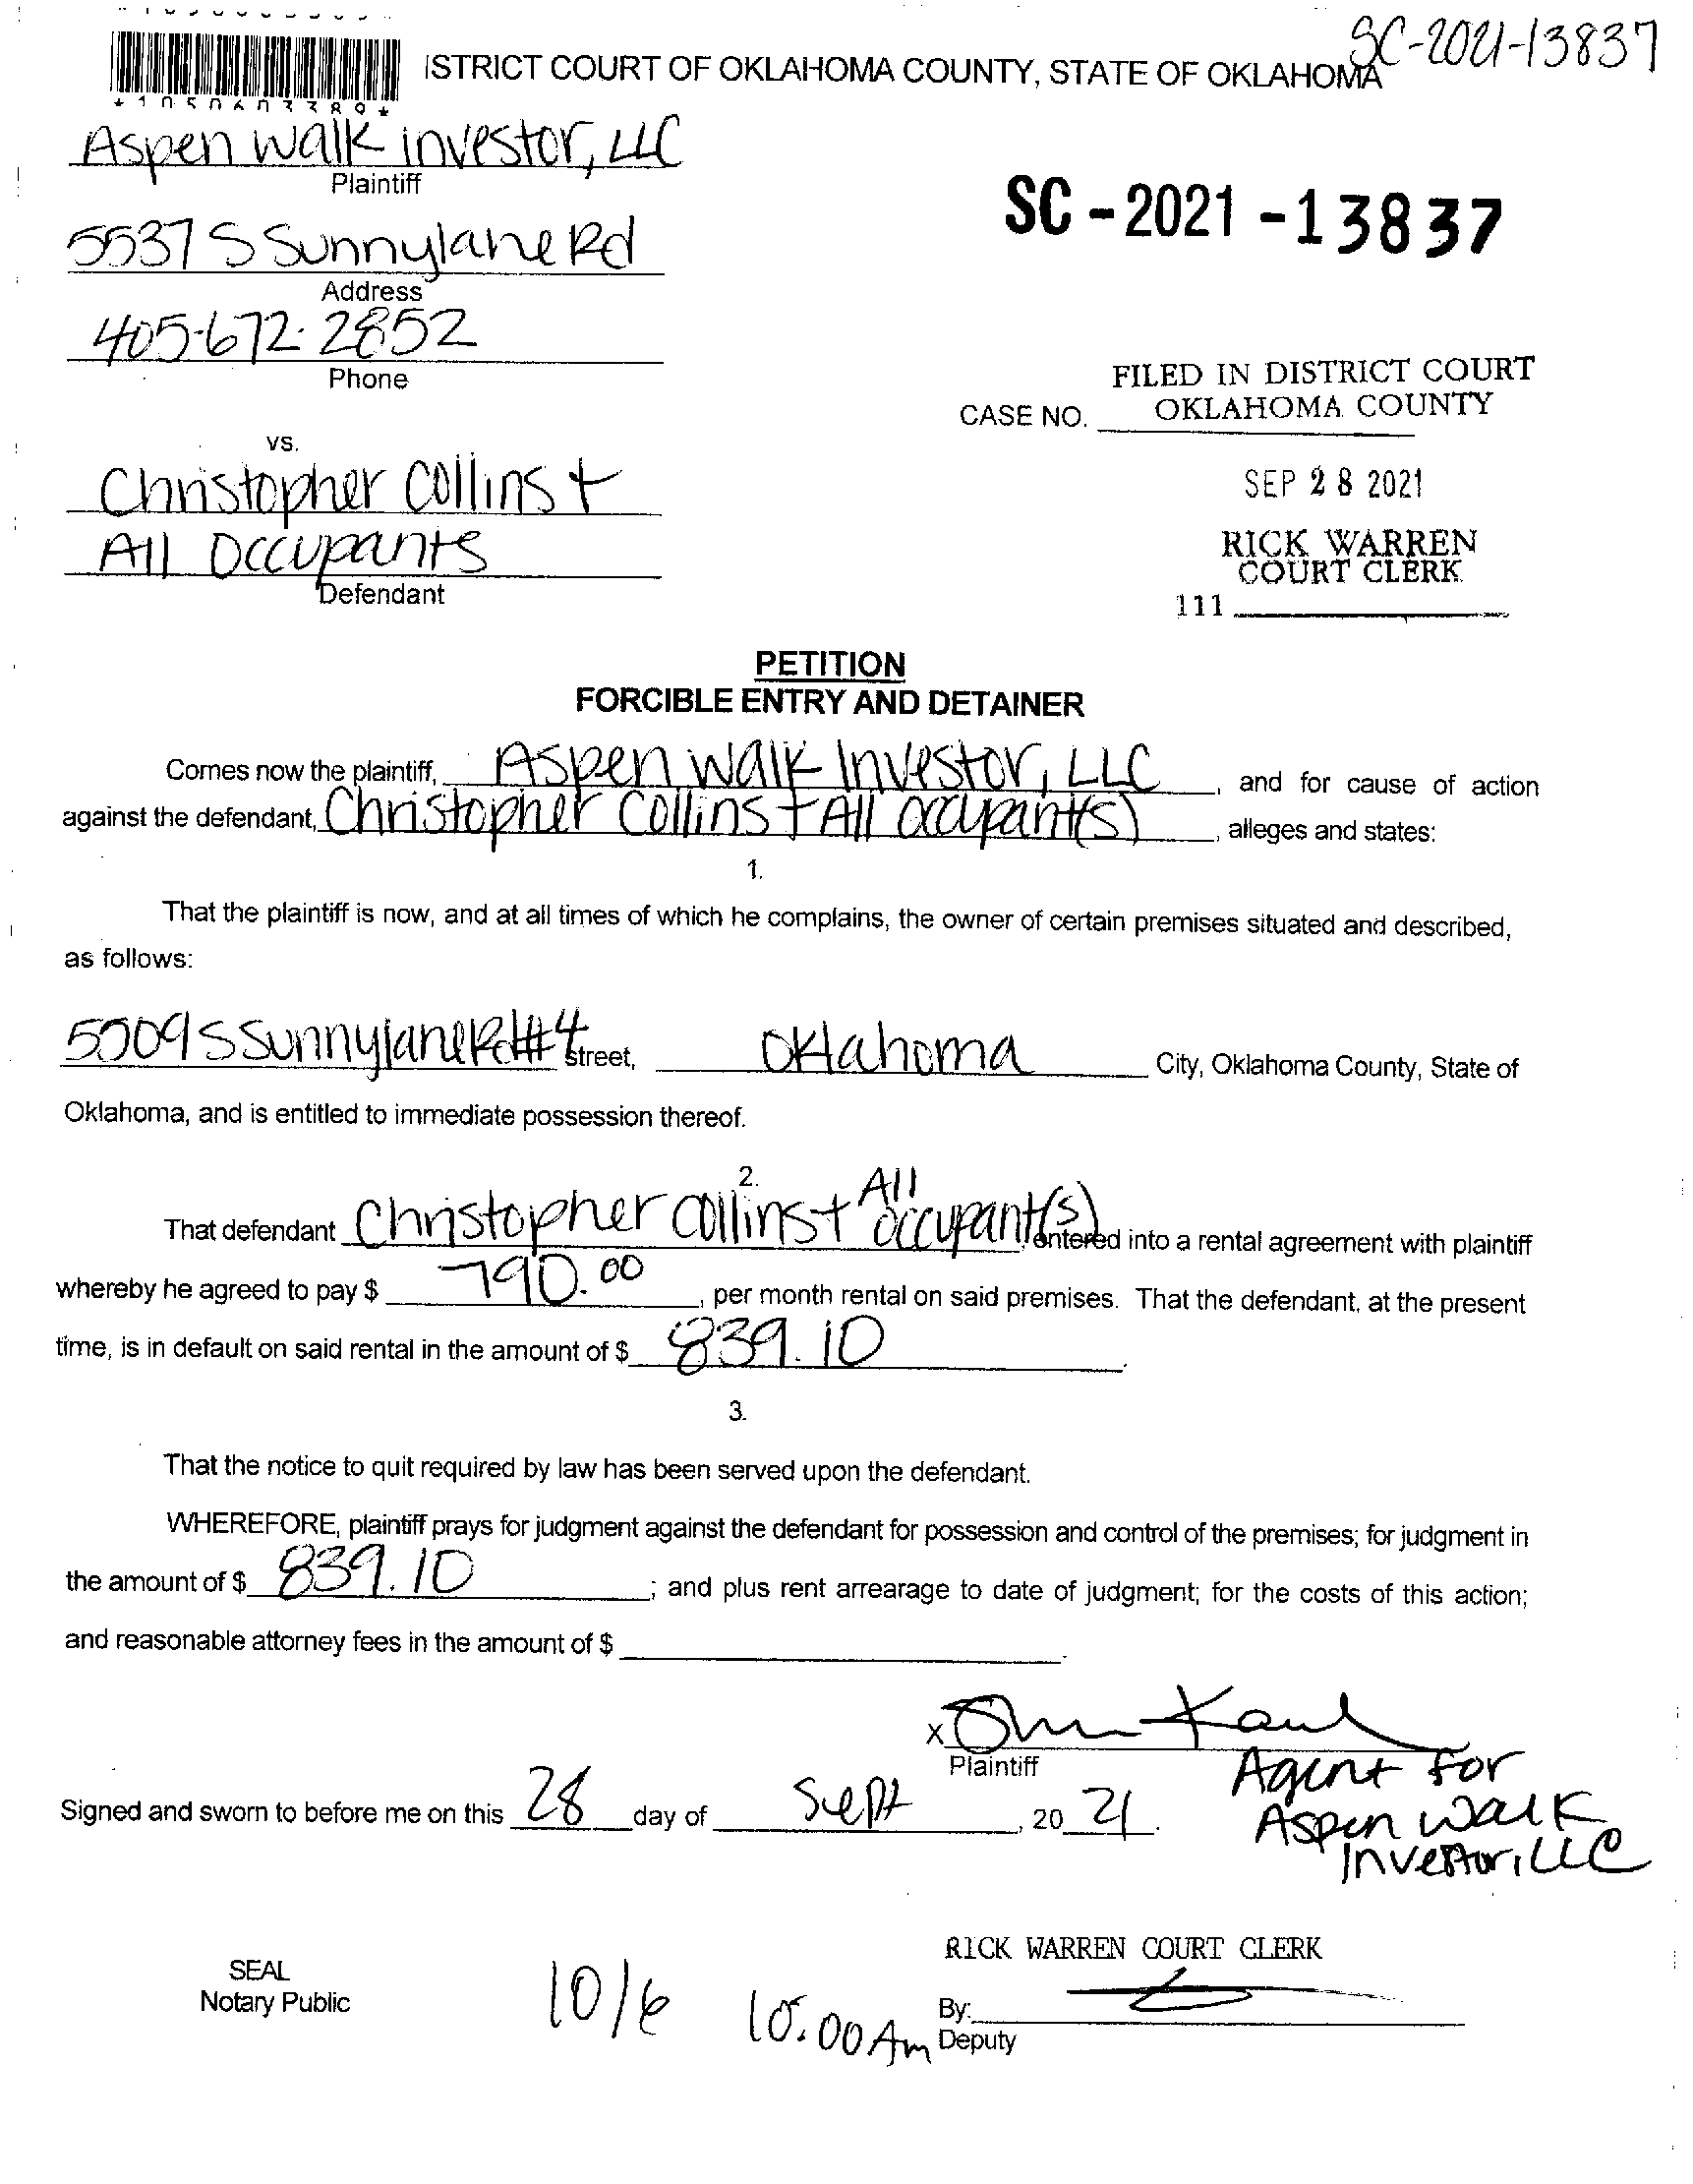 SC-2021-13837
ISTRICT COURT OF OKLAHOMA COUNTY, STATE OF OKLAHOMA
Aspen Walk investor, LLC
Plaintiff
SC - 2021 - 13837
5537 S Sunnylane Rd
Address
405-672-2852
Phone
FILED IN DISTRICT COURT
CASE NO. OKLAHOMA COUNTY
vs.
Christopher Collins +
SEP 28 2021
All Occupants
RICK WARREN
COURT CLERK
Defendant
111
PETITION
FORCIBLE ENTRY AND DETAINER
Comes now the plaintiff, Aspen Walk Investor, LLC, and for cause of action
against the defendant, Christopher Collins + All occupant(s), alleges and states:
1.
That the plaintiff is now, and at all times of which he complains, the owner of certain premises situated and described,
as follows:
5509 S Sunnylane Rd #4 street, Oklahoma City, Oklahoma County, State of
Oklahoma, and is entitled to immediate possession thereof.
2.
That defendant Christopher Collins + All occupant(s), entered into a rental agreement with plaintiff
whereby he agreed to pay $ 790.00, per month rental on said premises. That the defendant, at the present
time, is in default on said rental in the amount of $ 839.10.
3.
That the notice to quit required by law has been served upon the defendant.
WHEREFORE, plaintiff prays for judgment against the defendant for possession and control of the premises; for judgment in
the amount of $ 839.10; and plus rent arrearage to date of judgment; for the costs of this action;
and reasonable attorney fees in the amount of $
X
Plaintiff
Agent For
Signed and sworn to before me on this 28 day of Sept, 20 21.
Aspen Walk
Investor, LLC
RICK WARREN COURT CLERK
SEAL
Notary Public
10/6 10:00 Am
By:
Deputy